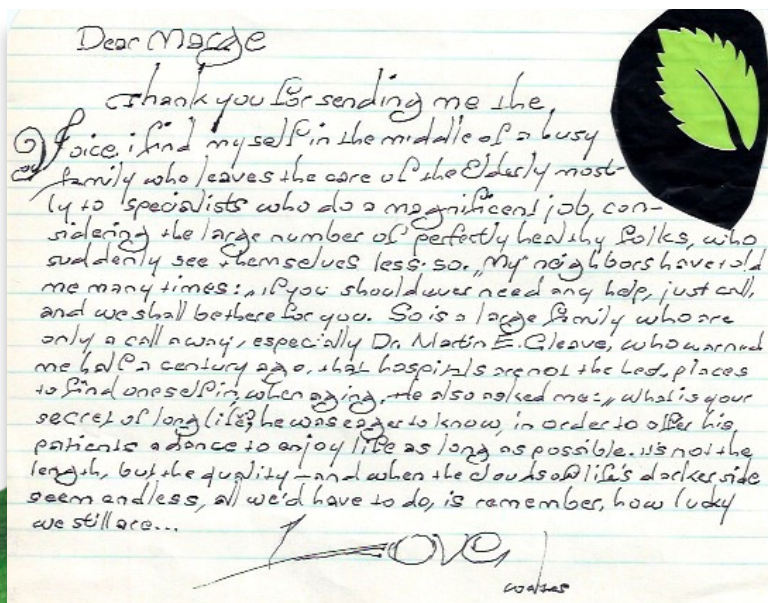 Dear Marge
Thank you for sending me the
Voice. i find myself in the middle of a busy
family who leaves the care of the Elderly most-
ly to specialists who do a magnificent job, con-
sidering the large number of perfectly healthy folks, who
suddenly see themselves less so. „My neighbors have told
me many times: „if you should ever need any help, just call,
and we shall be there for you. So is a large family who are
only a call away, especially Dr. Martin E. Gleave, who warned
me half a century ago, that hospitals are not the best places
to find oneself in, when aging. He also asked me: „what is your
secret of long life, he was eager to know, in order to offer his
patients a chance to enjoy life as long as possible. it's not the
length, but the quality – and when the clouds of life's darker side
seem endless, all we'd have to do, is remember, how lucky
we still are...
LOVE